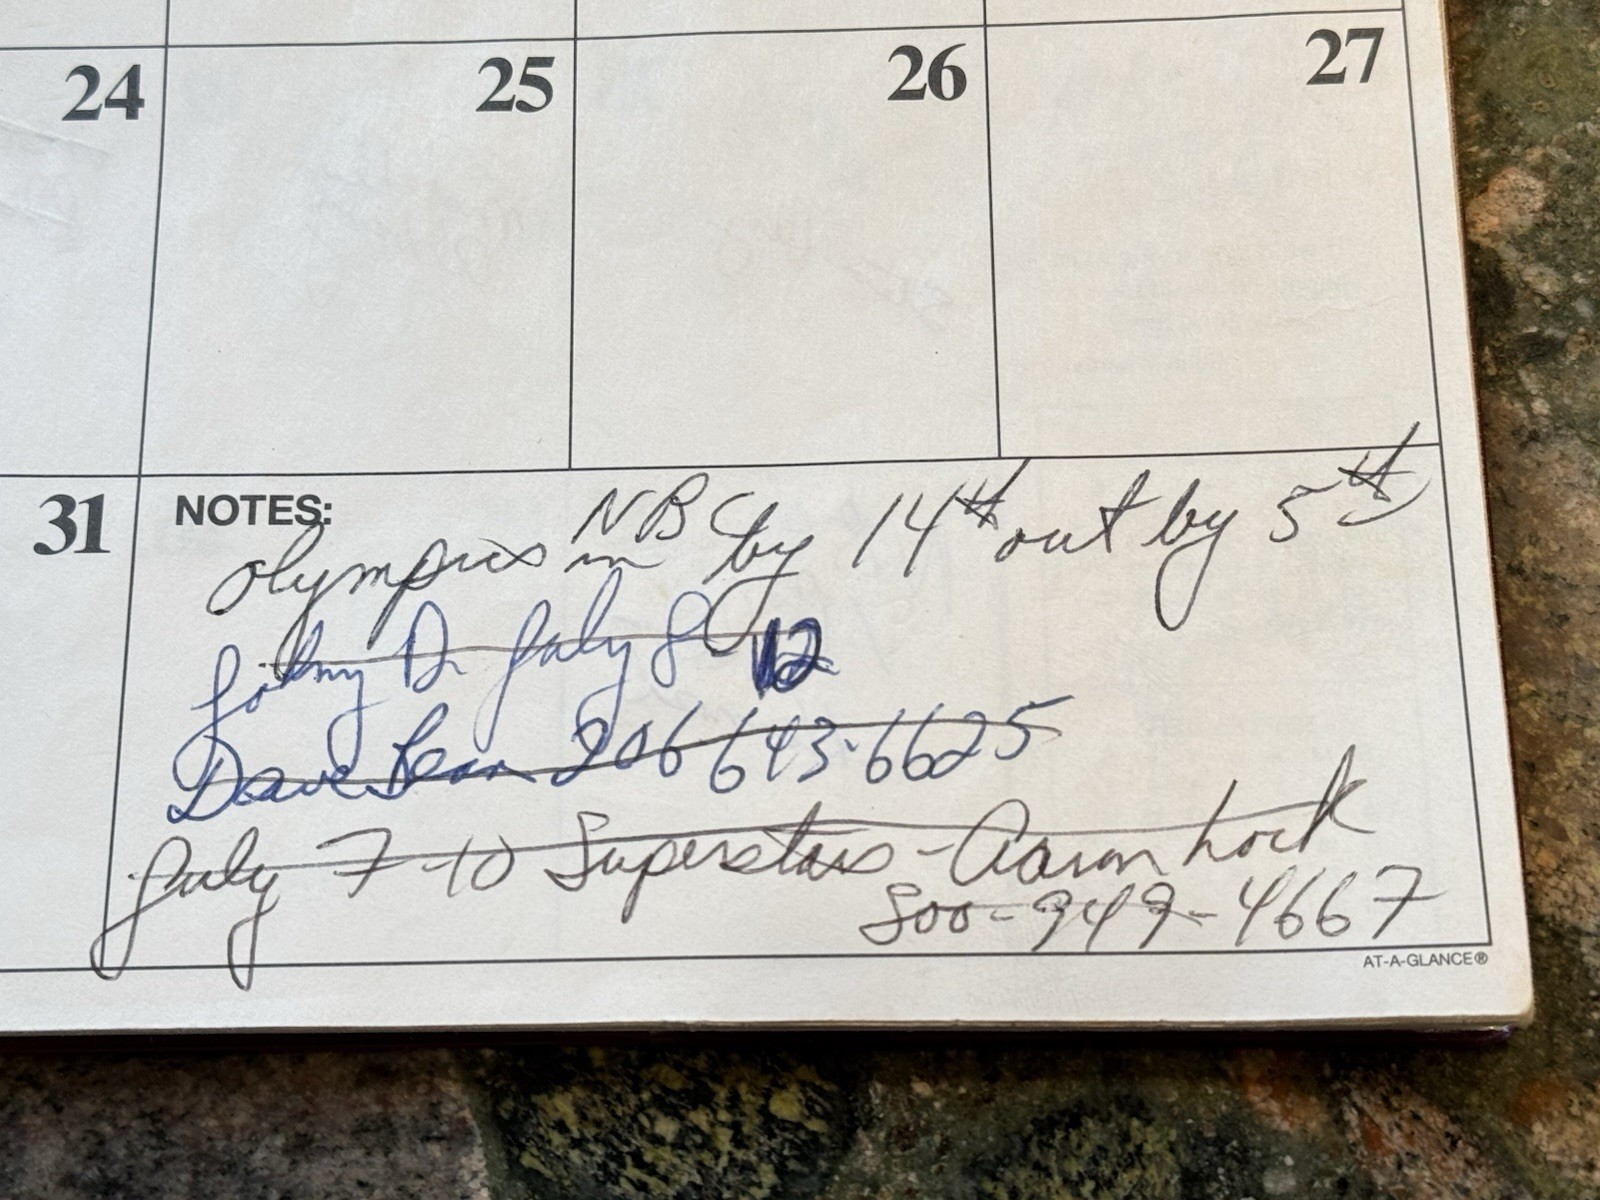 24 25 26 27
31 NOTES:
NBC
Olympics in by 14th out by 5th
Johny D. July 8 12
Dave 206 643-6625
July 7-10 Superstars - Aaron
800-949-4667
AT-A-GLANCE®